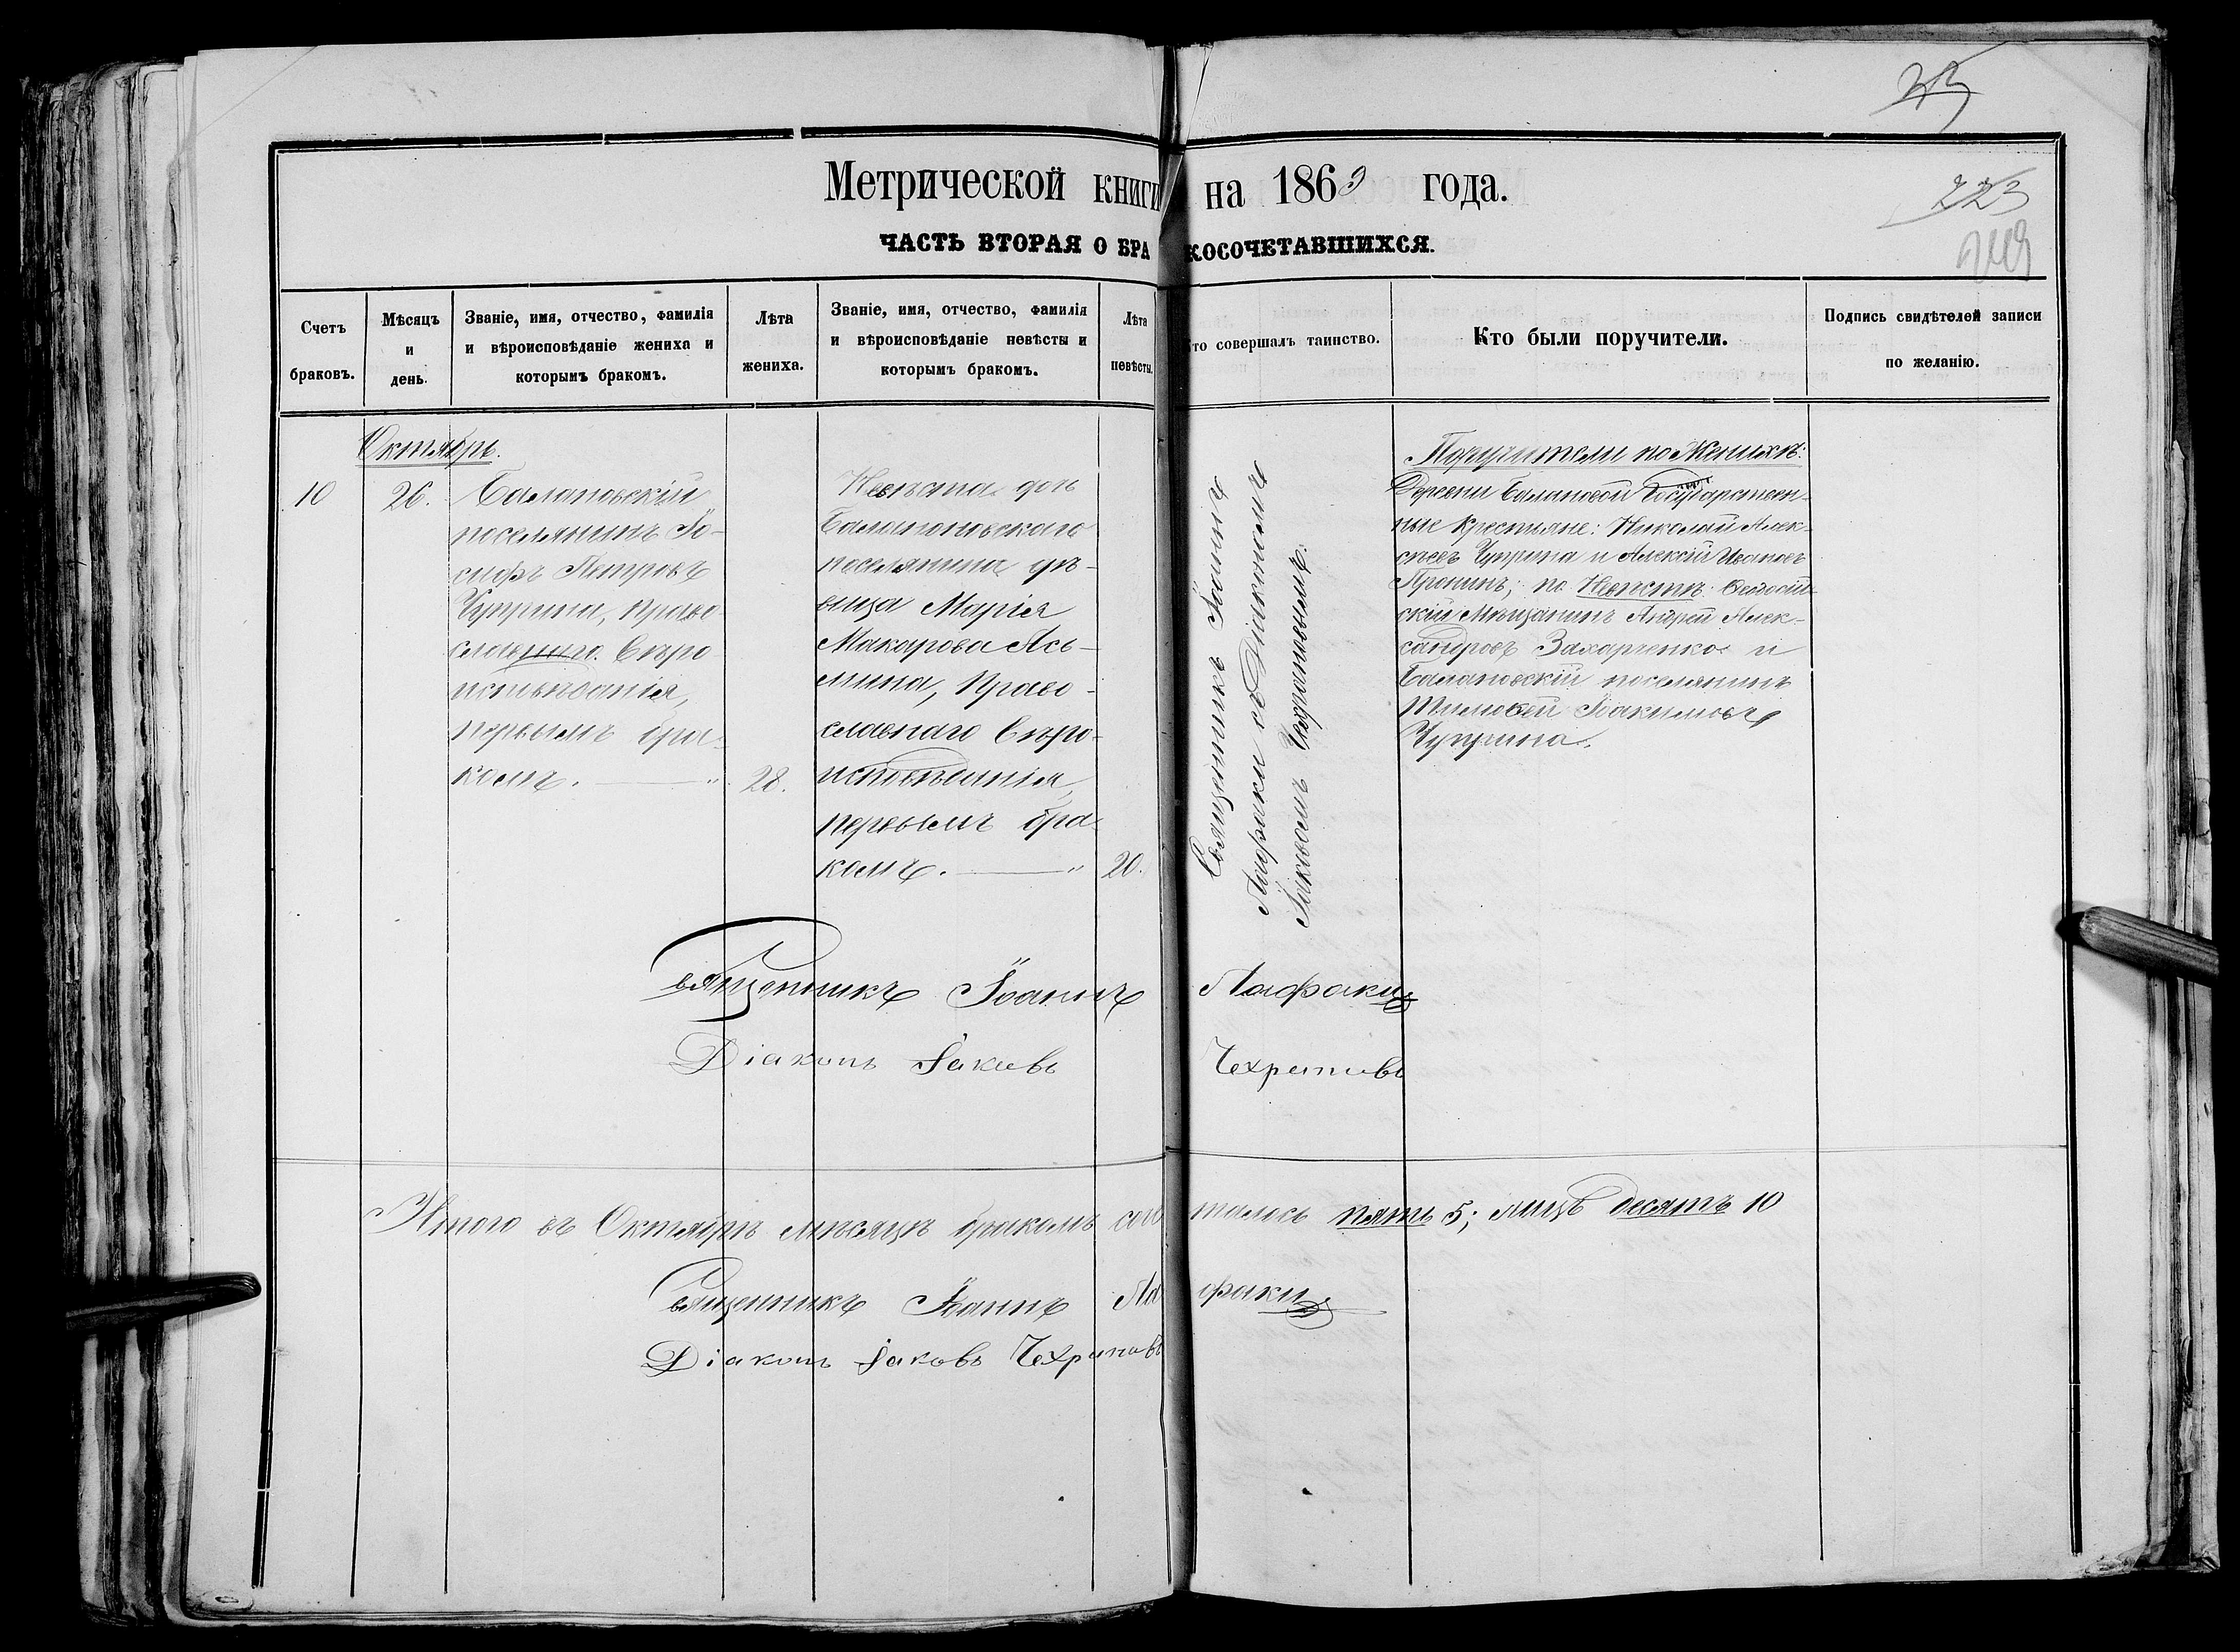 Метрической книги на 1869 года.
223
ЧАСТЬ ВТОРАЯ О БРАКОСОЧЕТАВШИХСЯ.
Счетъ браковъ.
Мѣсяцъ и день.
Званіе, имя, отчество, фамилія
и вѣроисповѣданіе жениха и
которымъ бракомъ.
Лѣта жениха.
Званіе, имя, отчество, фамилія
и вѣроисповѣданіе невѣсты и
которымъ бракомъ.
Лѣта невѣсты.
то совершалъ таинство.
Кто были поручители.
Подпись свидѣтелей записи
по желанію.
Октябрь.
10
26.
Балановскій
поселянинъ Іо-
сифъ Петровъ
Чуприна, Право
славнаго. Вѣро
исповѣданія,
первымъ бра-
комъ. — "
28.
Невѣста дочь
поселянина дѣ-
вица Марія
Макарова
Право-
славнаго Вѣро-
исповѣданія,
первымъ бра-
комъ. — "
20.
Священникъ Іоаннъ
Лафаки съ Діакономъ
Іаковомъ Чехрановымъ.
Поручители по Женихѣ:
Деревни Балановой Государствен-
ные Крестьяне: Николай Алек-
сѣевъ Чуприна и Алексій Ивановъ
Пронинъ; по Невѣстѣ: Ѳеодосій-
скій Мѣщанинъ Андрей Алек-
сандровъ Захарченко и
Балановскій поселянинъ
Тимоѳей Іоакимовъ
Чуприна.
Священникъ Іоаннъ Лафаки
Діаконъ Іаковъ Чехрановъ
Итого въ Октябрѣ мѣсяцѣ бракомъ соче талось пять 5; лицъ десять 10
Священникъ Іоаннъ Лафаки
Діаконъ Іаковъ Чехрановъ